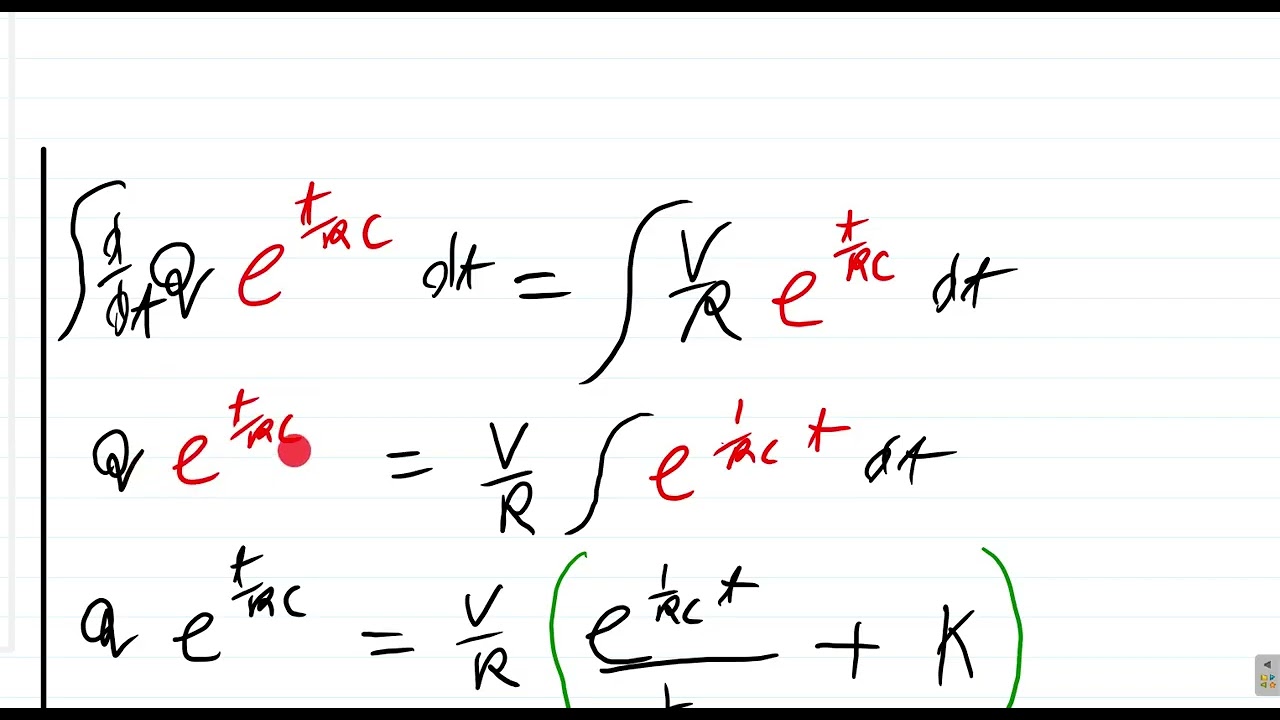 ∫ d/dt Q e^(t/RC) dt = ∫ V/R e^(t/RC) dt
Q e^(t/RC) = V/R ∫ e^(1/RC t) dt
Q e^(t/RC) = V/R ( e^(1/RC t) / + K )